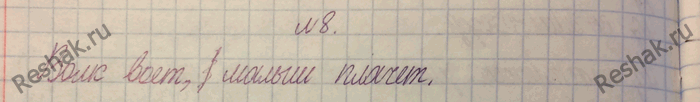 №8.
Волк воет, малыш плачет.
Reshak.ru
Reshak.ru
Reshak.ru